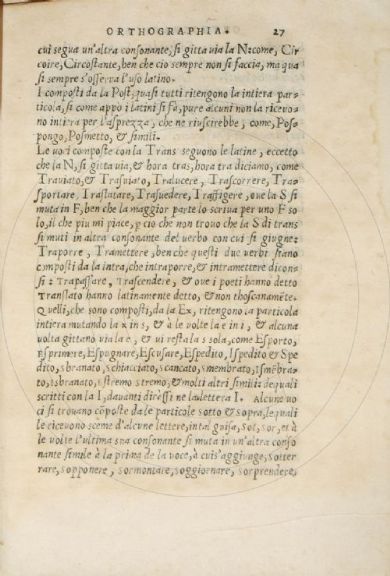 ORTHOGRAPHIA. 27
cui segua un'altra consonante, si gitta via la N: come, Cir
coire, Circostante, ben che cio sempre non si faccia, ma qua
si sempre s'osserva l'uso latino.
I composti da la Post, quasi tutti ritengono la intiera par=
ticola, si come appo i latini si fa, pure alcuni non la ricevo=
no intiera per l'asprezza, che ne riuscirebbe, come, Pos=
pongo, Posmetto, & simili.
Le voci composte con la Trans seguono le latine, eccetto
che la N, si gitta via, & hora tras, hora tra diciamo, come
Traviato, & Trasviato, Tralucere, Trascorrere, Tra=
sportare, Traslatare, Trasuedere, Trasfigere, ove la S si
muta in F, ben che la maggior parte lo scriva per uno F so
lo, il che piu mi piace, p cio che non trovo che la S di trans
si muti in altra consonante del verbo con cui si giugne:
Traporre, Tramettere, ben che questi due verbi siano
composti da la intra, che intraporre, & intramettere dicono=
si: Trapassare, Trascendere, & ove i poeti hanno detto
Translato hanno latinamente detto, & non thoscanamēte.
Quelli, che sono composti, da la Ex, ritengono la particola
intiera mutando la x in s, & à le volte la e in i, & alcuna
volta gittano via la e, & vi resta la s sola, come Esporto,
Esprimere, Espugnare, Escusare, Espedito, Ispedito & Spe
dito, sbranato, schiacciato, scancato, smembrato, ismēbra=
to, isbranato, istremo stremo, & molti altri simili: de quali
scritti con la I, davanti diressi ne la lettera I. Alcune vo
ci si trovano cōposte da le particole sotto & sopra, le quali
le ricevono sceme d'alcune lettere, in tal guisa, sot, sor, et à
le volte l'ultima sua consonante si muta in un'altra conso
nante simile à la prima de la voce, à cui s'aggiunge, sotter
rare, sopponere, sormontare, soggiornare, sorprendere,